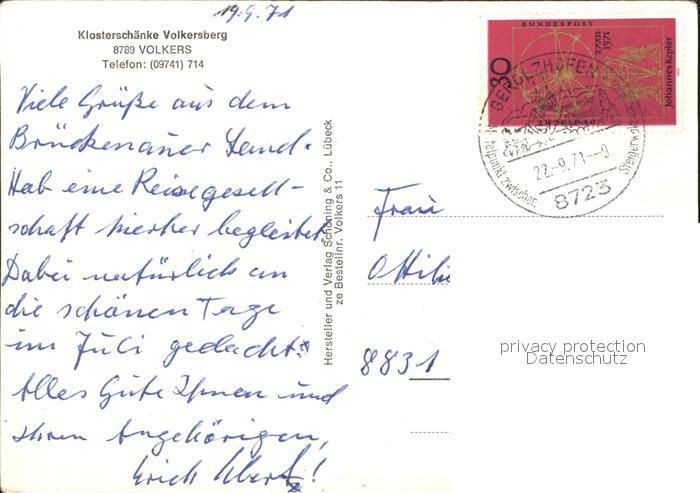 19.9.71
Klosterschänke Volkersberg
8789 VOLKERS
Telefon: (09741) 714
Viele Grüße aus dem
Brückenauer Land.
Hab eine Reisegesell-
schaft hierher begleitet.
Dabei natürlich an
die schönen Tage
im Juli gedacht!
Alles Gute Ihnen und
Ihren Angehörigen,
Erich
Hersteller und Verlag Schöning & Co., Lübeck
ze Bestellnr. Volkers 11
DEUTSCHE BUNDESPOST
30
27.XII.
1571
Johannes Kepler
GEROLZHOFEN
22.-9.71-9
8723
Mittelpunkt zwischen
Frau
Ottilie
8831
privacy protection
Datenschutz